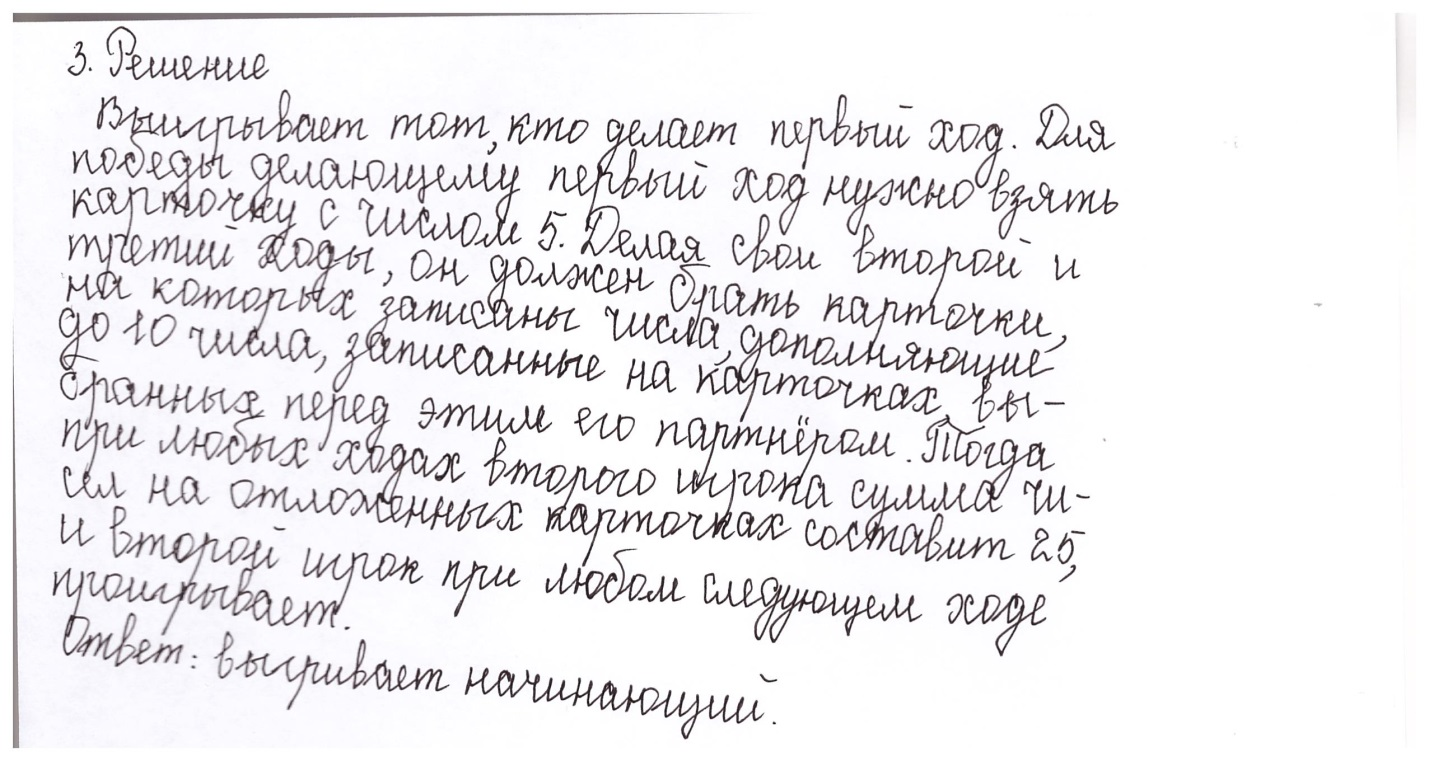 3. Решение
Выигрывает тот, кто делает первый ход. Для
победы делающему первый ход нужно взять
карточку с числом 5. Делая свои второй и
третий ходы, он должен брать карточки,
на которых записаны числа, дополняющие
до 10 числа, записанные на карточках, вы-
бранных перед этим его партнёром. Тогда
при любых ходах второго игрока сумма чи-
сел на отложенных карточках составит 25,
и второй игрок при любом следующем ходе
проигрывает.
Ответ: выгривает начинающий.